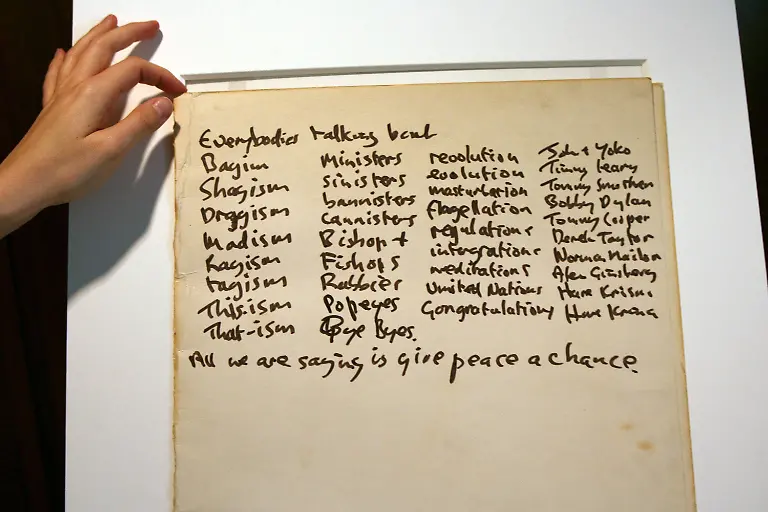 Everybodies talking bout
Bagism
Shagism
Dragism
Madism
Ragism
Tagism
This-ism
That-ism
Ministers
sinisters
bannisters
cannisters
Bishops
Fishops
Rabbies
Popeyes
Bye Byes.
revolution
evolution
masturbation
flagellation
regulations
intergrations
meditations
United Nations
Congratulations
John + Yoko
Timmy Leary
Tommy Smothers
Bobby Dylan
Tommy Cooper
Derek Taylor
Norman Mailer
Alen Ginsberg
Hare Krisna
Hare Krsna
All we are saying is give peace a chance.